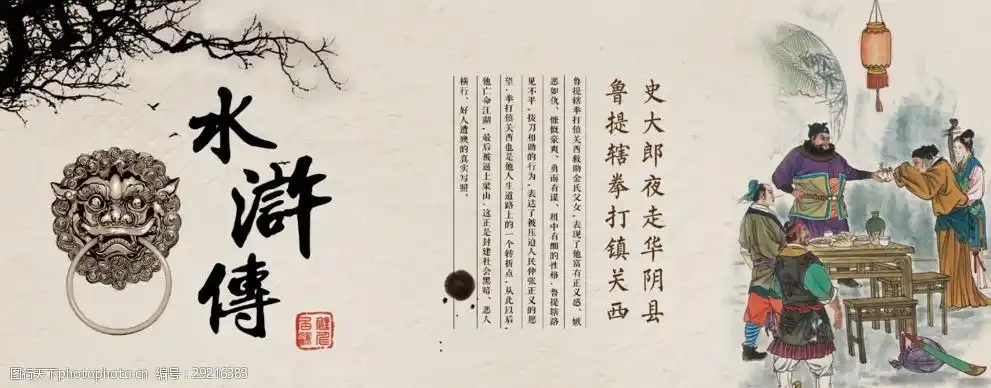 水滸傳
史大郎夜走华阴县
鲁提辖拳打镇关西
鲁提辖拳打镇关西救助金氏父女，表现了他富有正义感、嫉
恶如仇、慷慨豪爽、勇而有谋、粗中有细的性格，鲁提辖路
见不平，拔刀相助的行为，表达了被压迫人民伸张正义的愿
望，拳打镇关西也是他人生道路上的一个转折点，从此以后，
他亡命江湖，最后被逼上梁山，这正是封建社会黑暗、恶人
横行、好人遭殃的真实写照。
图行天下 photophoto.cn 编号：29216383